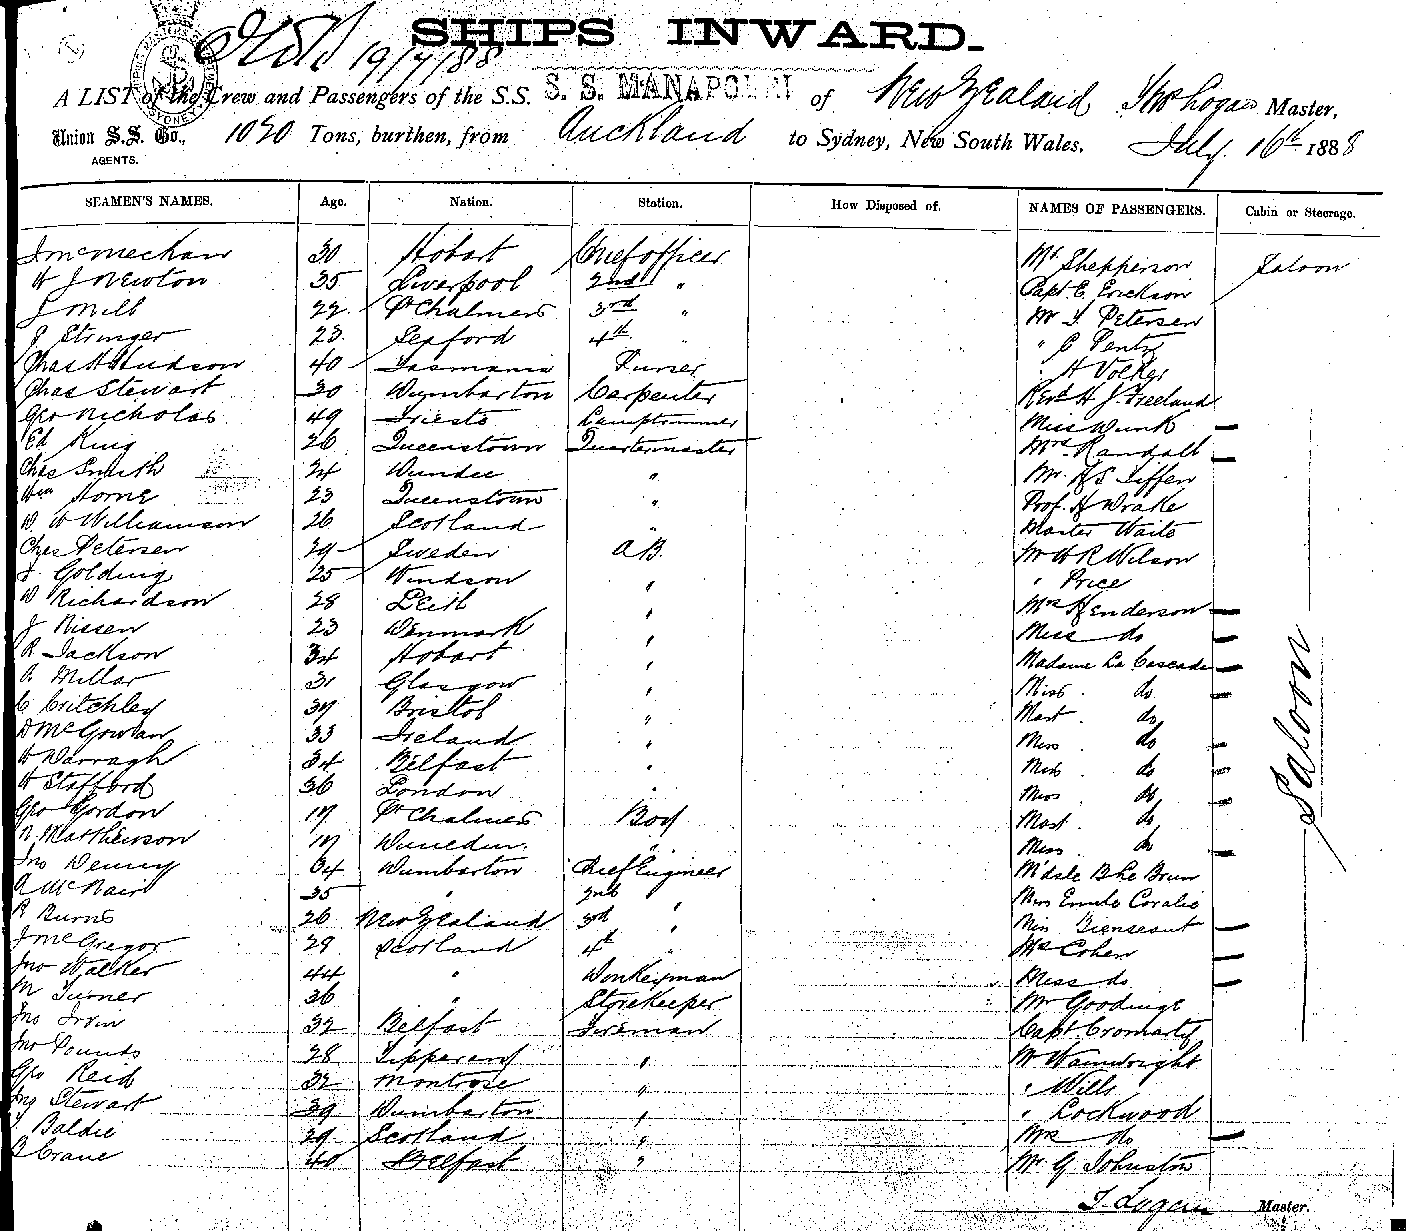 SHIPS INWARD.
19/7/88
A LIST of the Crew and Passengers of the S.S. S. S. MANAPOURI of New Zealand Thos Logan Master,
Union S.S. Co., 1020 Tons, burthen, from Auckland to Sydney, New South Wales, July 16th 1888
AGENTS.
SEAMEN'S NAMES. Age. Nation. Station. How Disposed of. NAMES OF PASSENGERS. Cabin or Steerage.
J McMechan 30 Hobart Chief officer Mr Shepperson Saloon
H J Newton 35 Liverpool 2nd " Capt E. Erickson
J Mill 22 Pt Chalmers 3rd " Mr J Petersen
J Stringer 23 Seaford 4th " " C Pentz
Chas H Hudson 40 Tasmania Purser " H Volker
Chas Stewart 30 Dumbarton Carpenter Revd H J Freeland
Geo Nicholas 49 Trieste Lamptrimmer Miss Wunk
Ed King 26 Queenstown Quartermaster Mrs Randall
Chas Smith 24 Dundee " Mr H S Tiffen
Wm Horne 23 Queenstown " Prof. H Drake
D. W Williamson 26 Scotland " Master Waite
Chas Petersen 29 Sweden A B. Mr W R Wilson
J. Golding 25 Windsor " " Price
D Richardson 28 Leith " Mrs Henderson
J Nissen 23 Denmark " Miss do
R Jackson 34 Hobart " Madame La Cascade
A. Millar 31 Glasgow " Miss do
C Critchley 37 Bristol " Mast. do
D McGowan 33 Ireland " Miss do
H Darragh 34 Belfast " Miss do
H Stafford 36 London " Miss do
Geo Gordon 17 Pt Chalmers Boy Mast do
N Matthewson 17 Dunedin " Miss do
Jno Denny 34 Dumbarton Chief Engineer M'dsle B Le Brun
A McNair 35 " 2nd " Miss Emile Coralie
R Burns 26 New Zealand 3rd " Miss Bienseaut
J McGregor 29 Scotland 4th " Mrs Cohen
Jno Walker 44 " Donkeyman Miss do
M Turner 36 " Storekeeper Mr Goodinge
Jno Irvin 32 Belfast Fireman Capt Cromarty
Jno Pounds 28 Tipperary " Mr Wainwright
Geo Reid 32 Montrose " " Wills
Jno Stewart 39 Dumbarton " " Lockwood
J Baldie 29 Scotland " Mrs do
B Crane 40 Belfast " Mr G Johnston
Saloon
T. Logan Master.